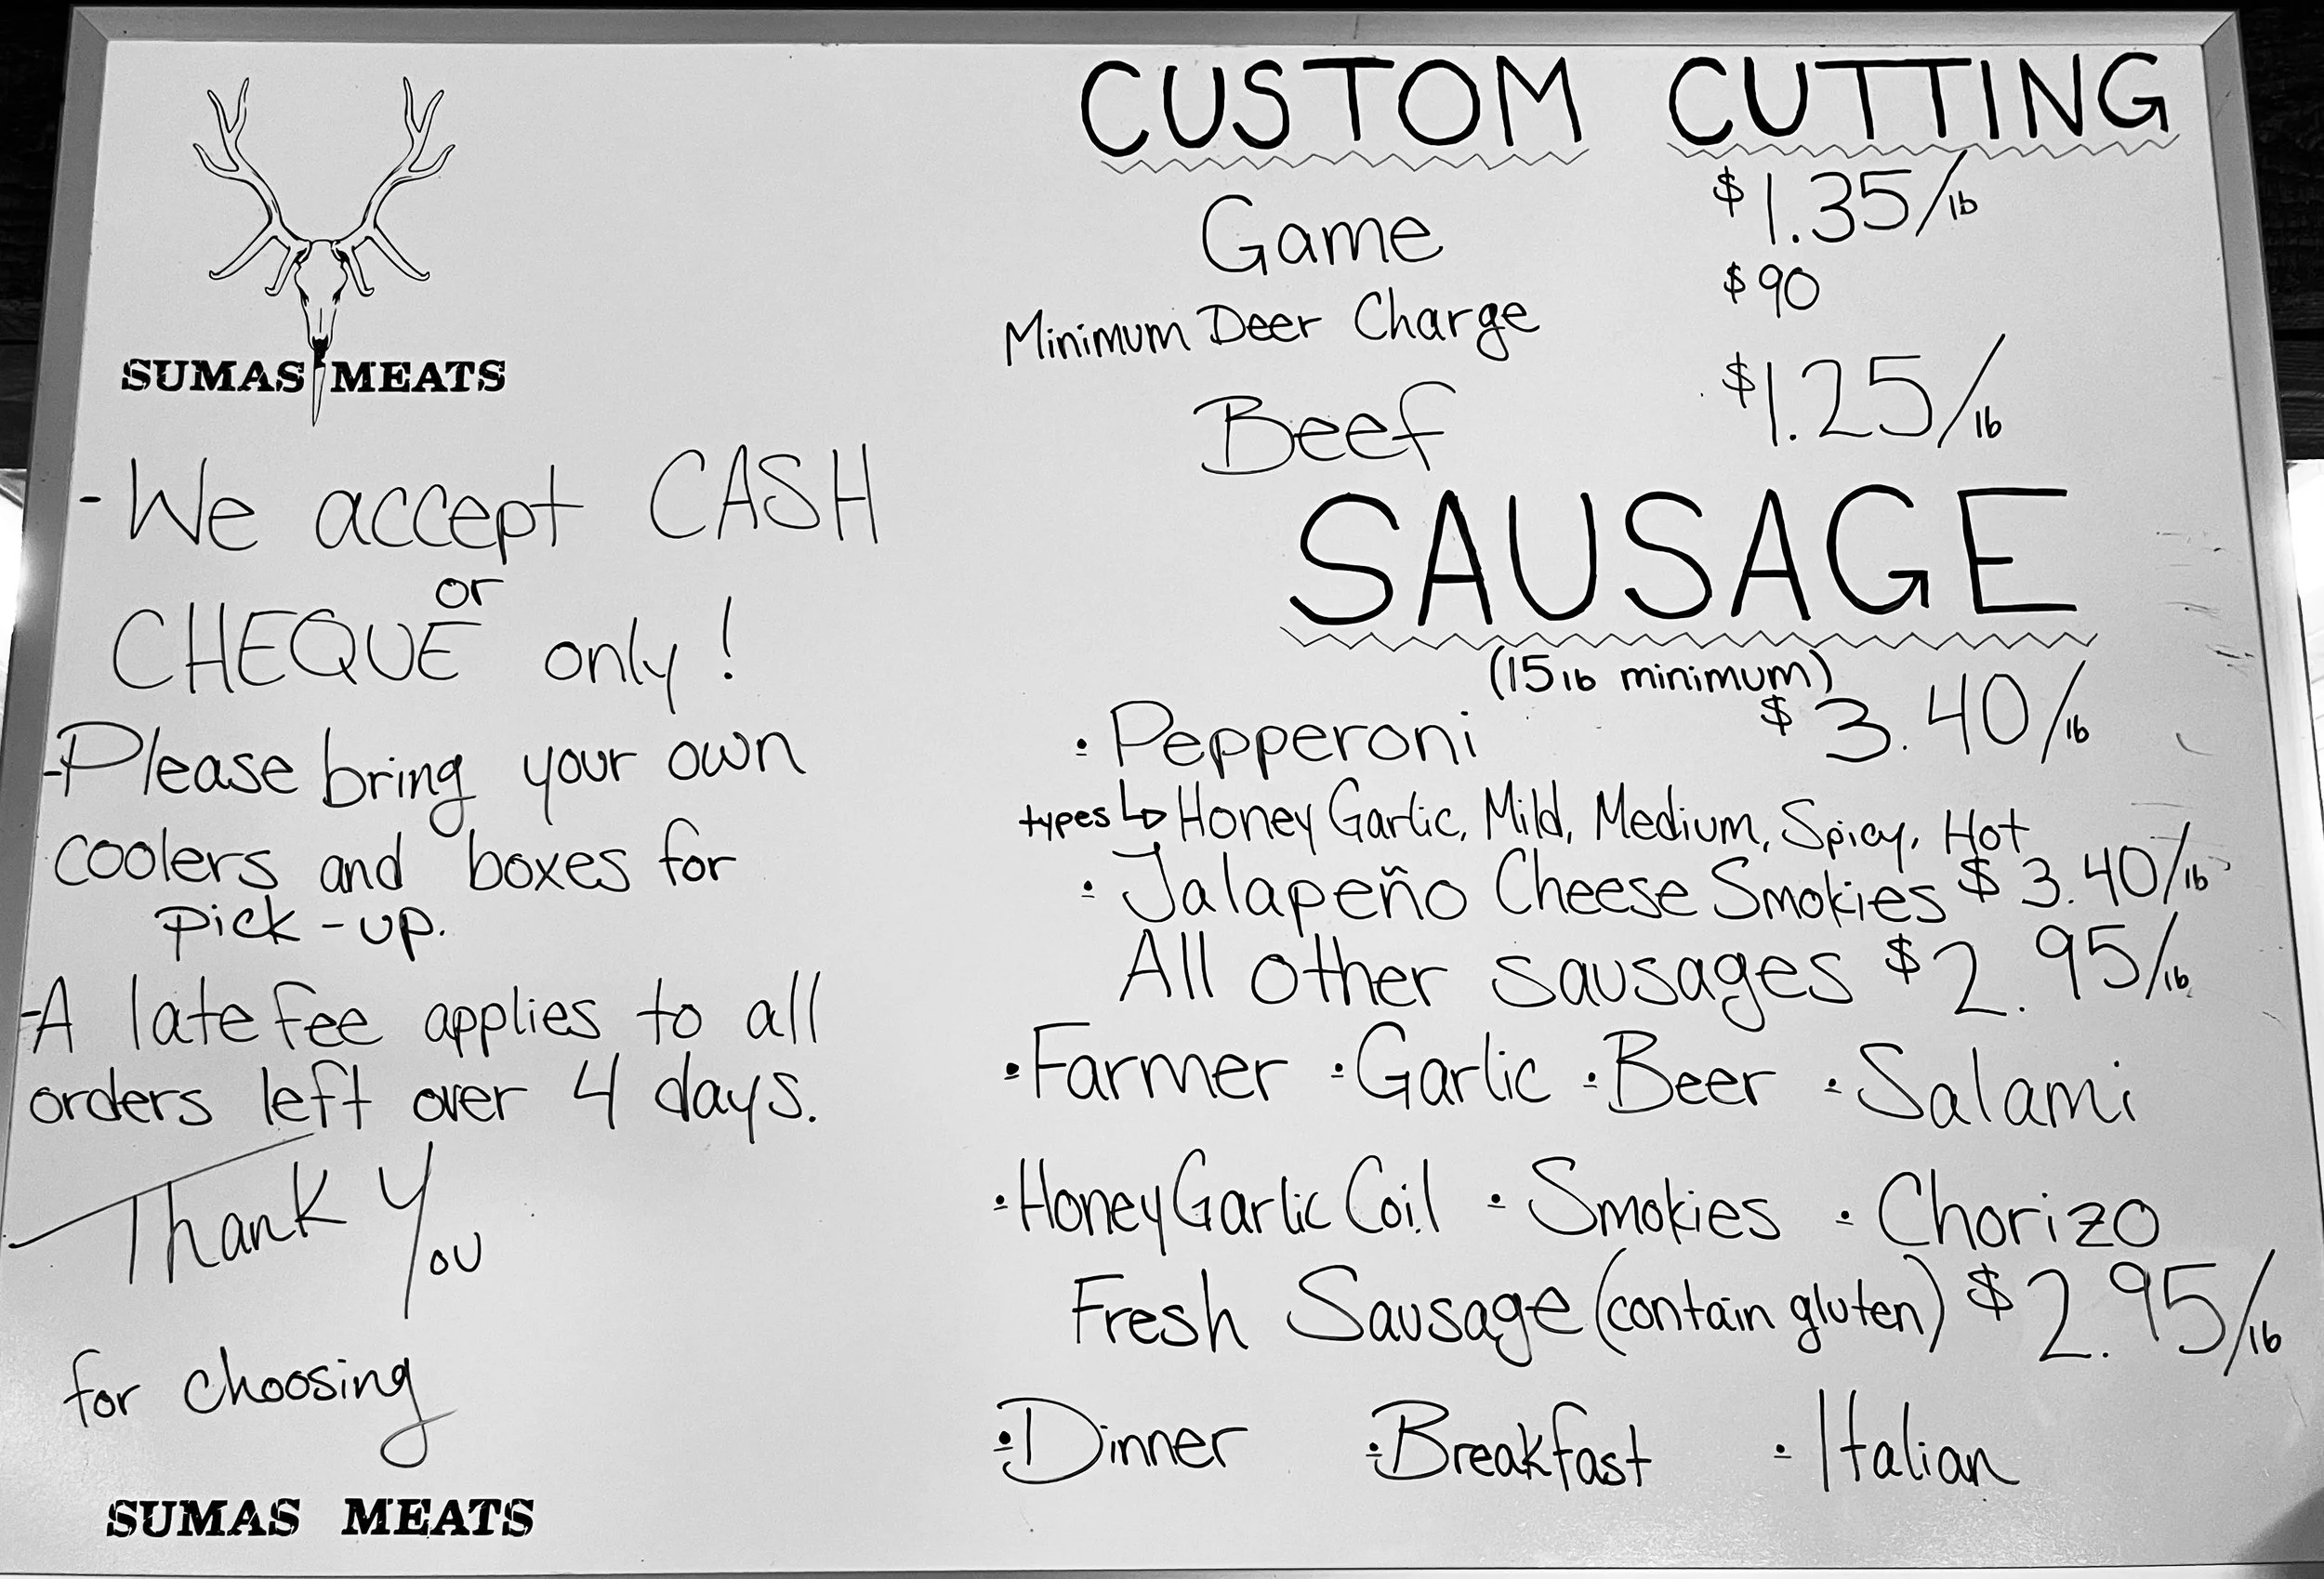 SUMAS MEATS
- We accept CASH
or
CHEQUE only!
-Please bring your own
coolers and boxes for
pick-up.
-A late fee applies to all
orders left over 4 days.
Thank You
for choosing
SUMAS MEATS
CUSTOM CUTTING
Game $1.35/lb
Minimum Deer Charge $90
Beef $1.25/lb
SAUSAGE
(15 lb minimum)
• Pepperoni $3.40/lb
types ↳ Honey Garlic, Mild, Medium, Spicy, Hot
• Jalapeño Cheese Smokies $3.40/lb
All other sausages $2.95/lb
• Farmer • Garlic • Beer • Salami
• Honey Garlic Coil • Smokies • Chorizo
Fresh Sausage (contain gluten) $2.95/lb
• Dinner • Breakfast • Italian